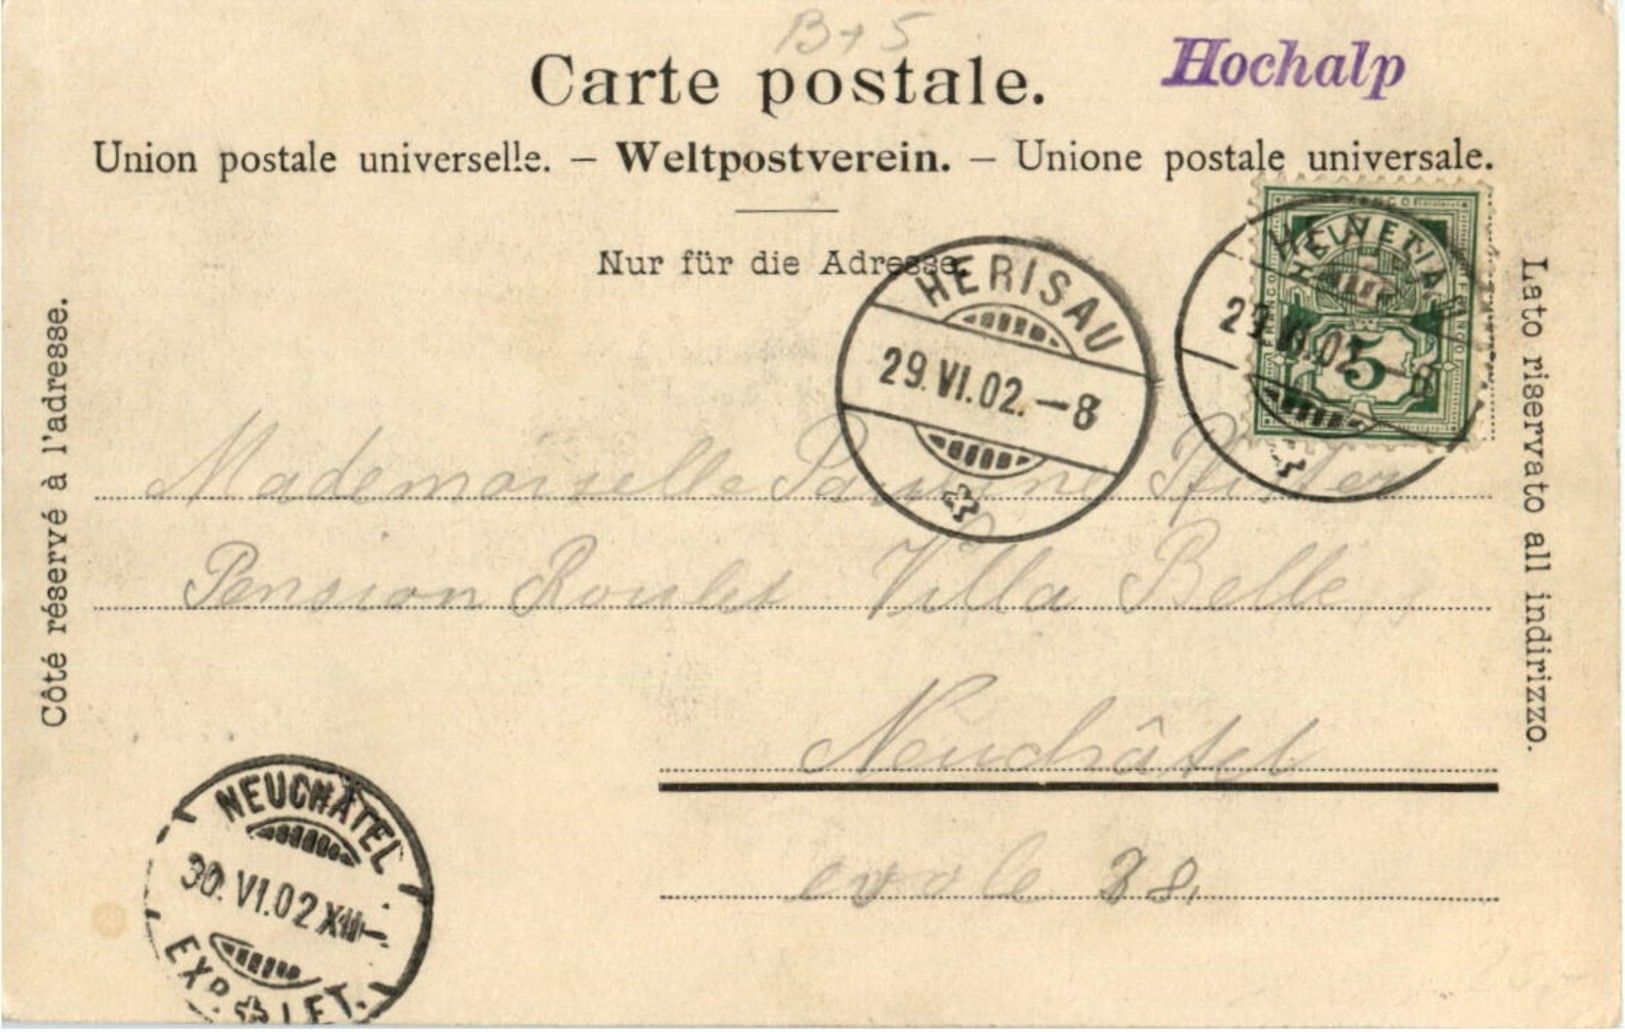 B+5
Carte postale.
Hochalp
Union postale universelle. – Weltpostverein. – Unione postale universale.
Nur für die Adresse.
Côté réservé à l'adresse.
Lato riservato all indirizzo.
FRANCO
HELVETIA
5
HERISAU
29.VI.02.–8
HERISAU
29.VI.02.–8
Mademoiselle Pauline Pfister
Pension Roulet Villa Belle
Neuchâtel
evole 28.
NEUCHÂTEL
30.VI.02 XII–
EXP. LET.